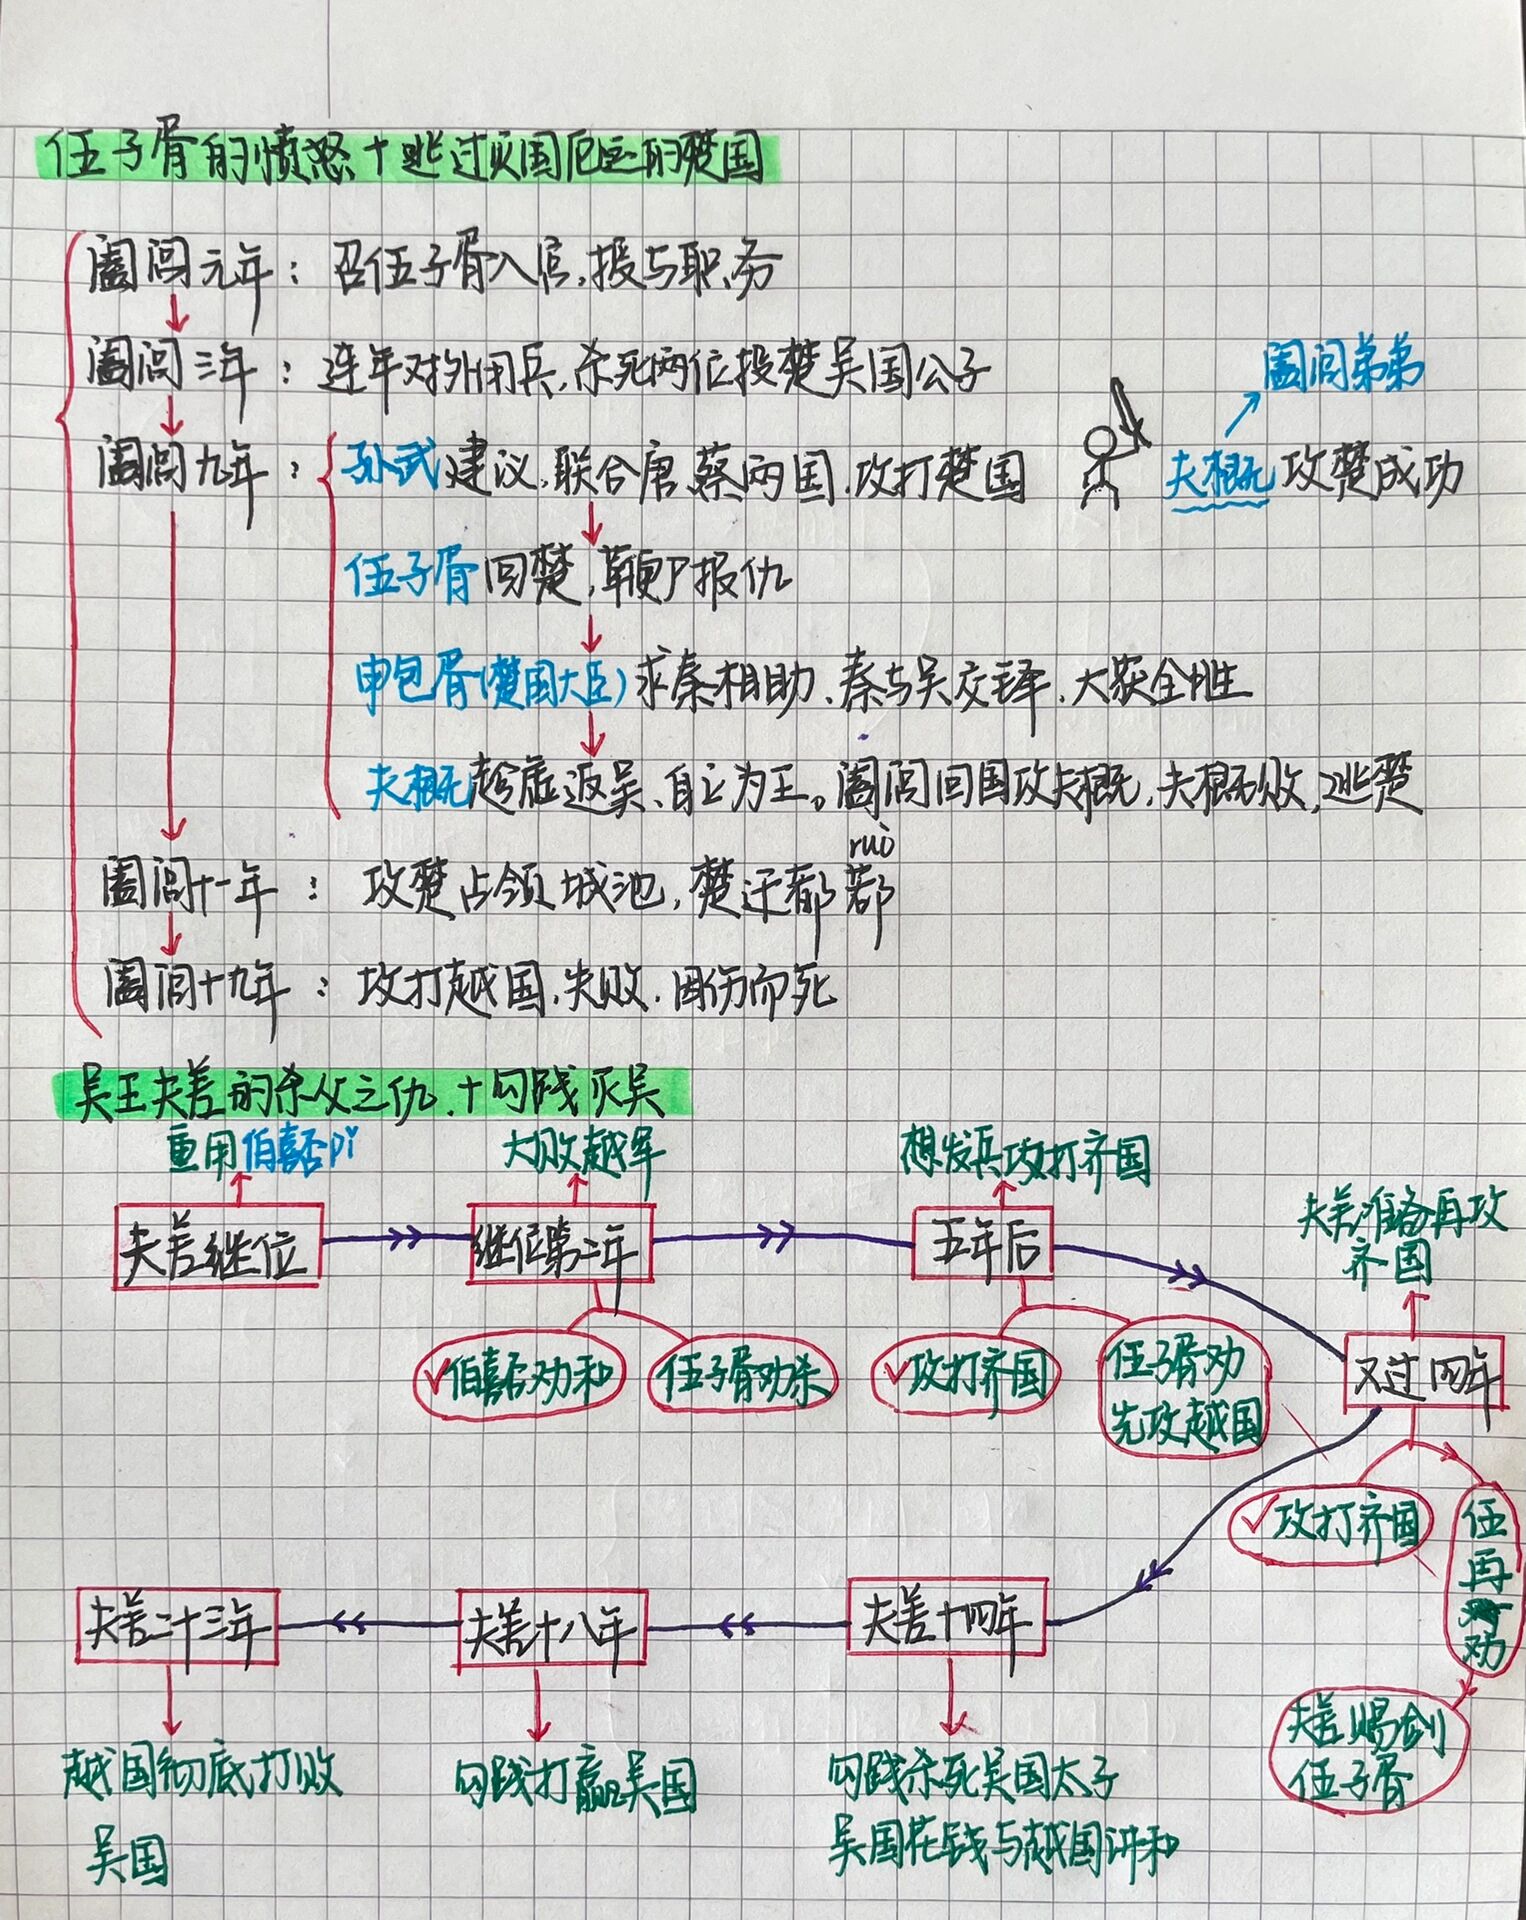 伍子胥的愤怒+逃过灭国厄运的楚国
阖闾元年：召伍子胥入宫，授与职务
阖闾三年：连年对外用兵，杀死两位投楚吴国公子
阖闾弟弟
阖闾九年：孙武建议，联合唐、蔡两国，攻打楚国
夫概攻楚成功
伍子胥回楚，鞭尸报仇
申包胥(楚国大臣)求秦相助，秦与吴交锋，大获全胜
夫概趁虚返吴、自立为王。阖闾回国攻夫概，夫概败，逃楚
ruò
阖闾十一年：攻楚占领城池，楚迁都鄀
阖闾十九年：攻打越国，失败，因伤而死
吴王夫差的杀父之仇+勾践灭吴
重用伯嚭pǐ
大败越军
想发兵攻打齐国
夫差准备再攻
齐国
夫差继位
继位第二年
五年后
又过四年
✓伯嚭劝和
伍子胥劝杀
✓攻打齐国
伍子胥劝
先攻越国
✓攻打齐国
伍再劝
夫差赐剑
伍子胥
夫差十四年
勾践杀死吴国太子
吴国花钱与越国讲和
夫差十八年
勾践打赢吴国
夫差二十三年
越国彻底打败
吴国